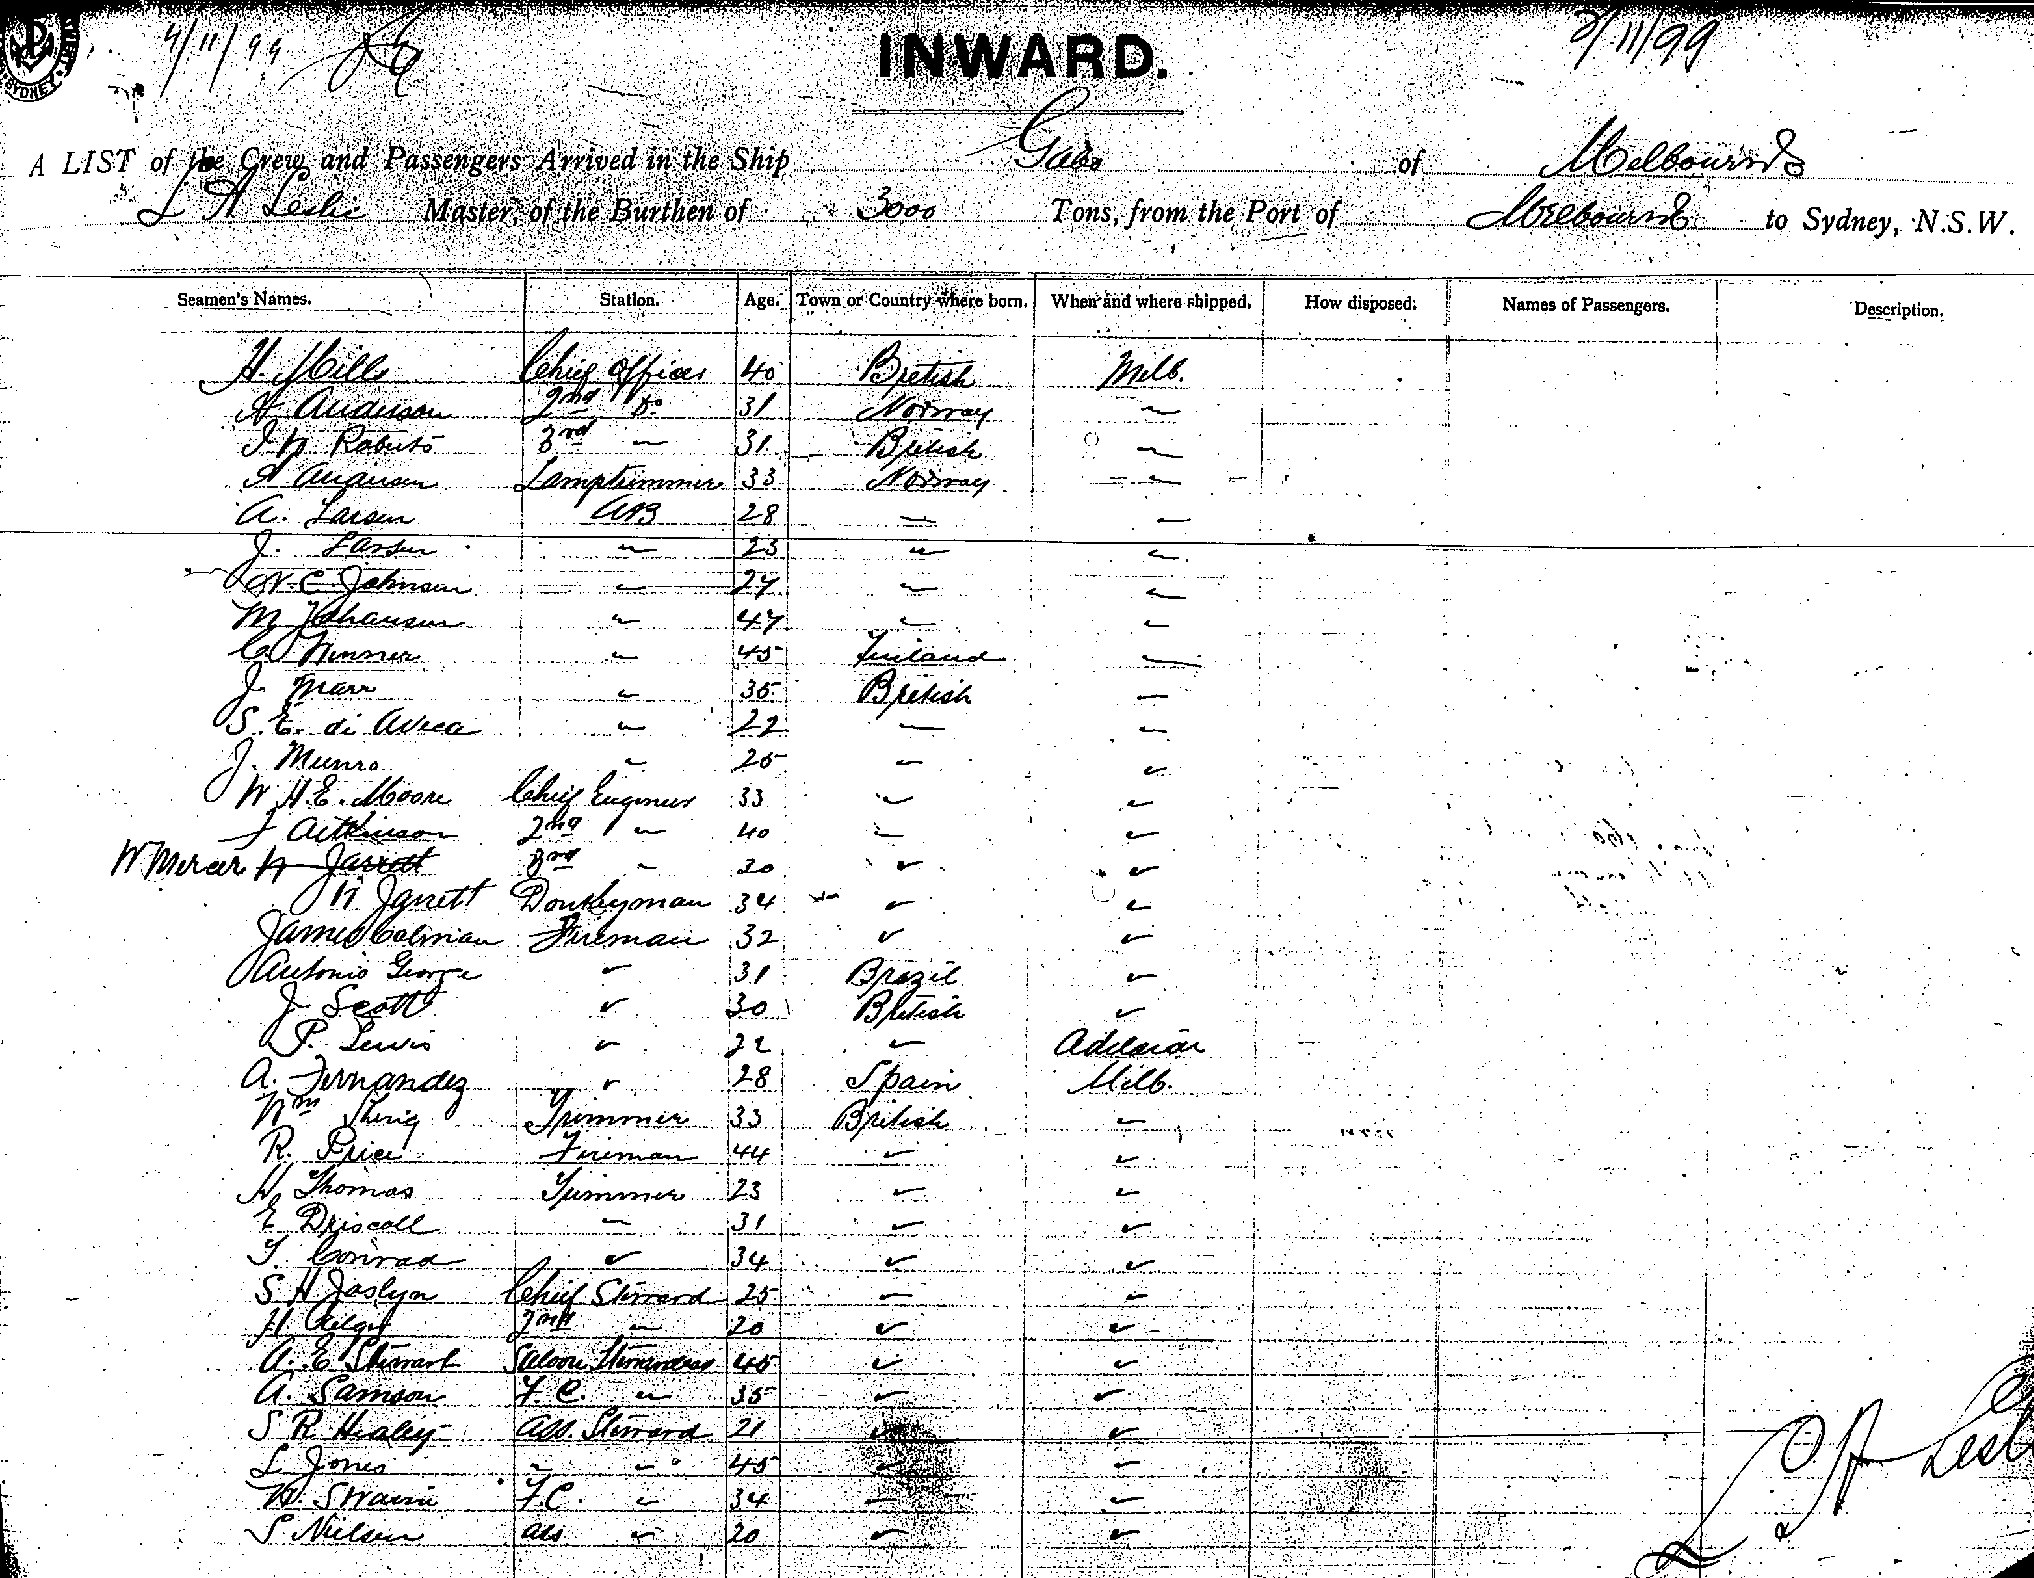 4/11/99
3/11/99
SYDNEY
INWARD.
A LIST of the Crew and Passengers Arrived in the Ship Gabo of Melbourne
L A Leslie Master, of the Burthen of 3000 Tons, from the Port of Melbourne to Sydney, N.S.W.
Seamen's Names. Station. Age. Town or Country where born. When and where shipped. How disposed. Names of Passengers. Description.
H Mills Chief Officer 40 British Melb.
H Anderson 2nd Do 31 Norway "
J W Roberts 3rd " 31 British "
A Andersen Lamptrimmer 33 Norway "
A. Larsen AB 28 " "
J. Larsen " 23 " "
W. C Johnsen " 27 " "
M Johansen " 47 " "
C. Winner " 45 Finland "
J. Marr " 35 British "
S. E. di " 22 " "
J. Munro " 25 " "
W H. E. Moore Chief Engineer 33 " "
J Aitkinson 2nd " 40 " "
W Mercer W Jarrett 3rd " 30 " "
W Jarrett Donkeyman 34 " "
James Colman Fireman 32 " "
Antonio George " 31 Brazil "
J Scott " 30 British "
P. Lewis " 22 " Adelaide
A. Fernandez " 28 Spain Melb.
Wm Trimmer 33 British "
R. Price Fireman 44 " "
H. Thomas Trimmer 23 " "
E Driscoll " 31 " "
T. Conrad " 34 " "
S H Joslyn Chief Steward 25 " "
H 2nd " 20 " "
A. E Stewart Saloon Stewardess 45 " "
A. Samson F. C. " 35 " "
S R Healey Ass. Steward 21 " "
L Jones " " 45 " "
W. Swaine F.C. " 34 " "
S Nielsen ass " 20 " "
L A Lesl